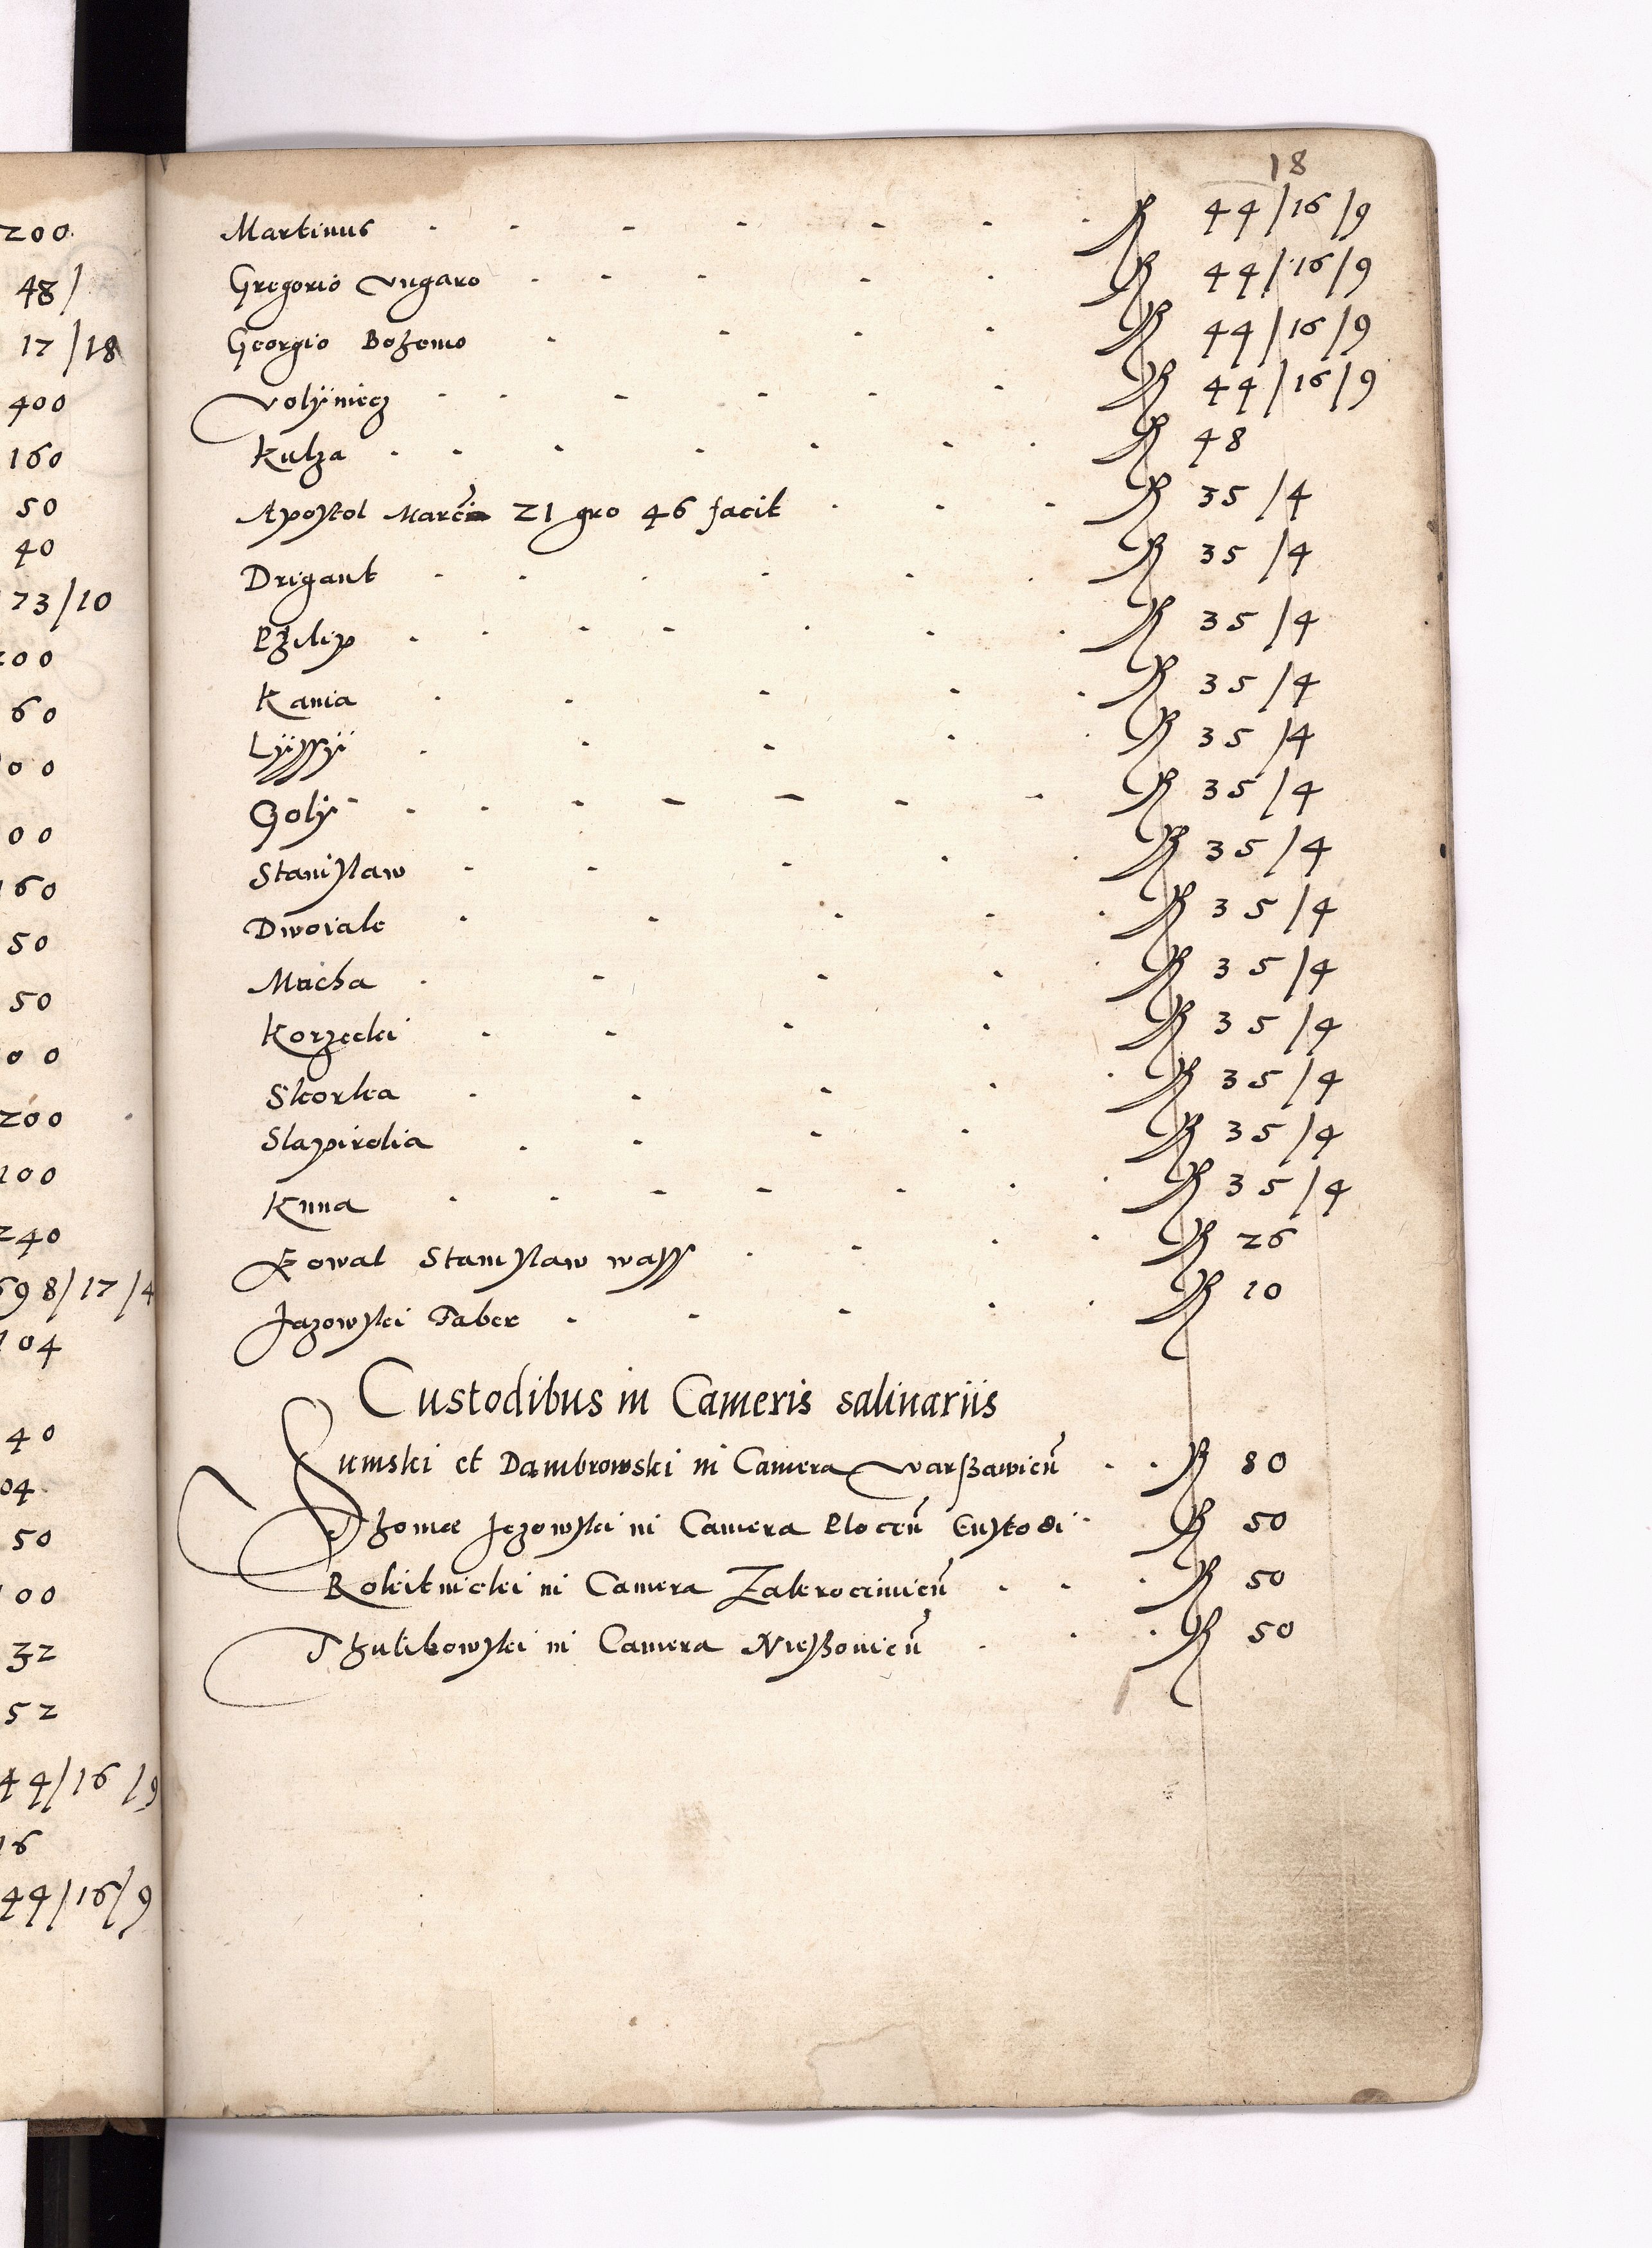 200
48/
17/18
400
160
50
40
73/10
00
60
00
00
160
50
50
00
200
100
240
698/17/4
104
40
04
50
00
32
52
44/16/9
16
44/16/9
18
Martinus . . . . . . . ℟ 44/16/9
Gregorio Vngaro . . . . . ℟ 44/16/9
Georgio Bohemo . . . . ℟ 44/16/9
Volÿniecz . . . . . . ℟ 44/16/9
Kulza . . . . . . . ℟ 48
Apostol Marci 21 gro 46 facit . . . ℟ 35/4
Drigant . . . . . . ℟ 35/4
Philip . . . . . . . ℟ 35/4
Kania . . . . . ℟ 35/4
Lÿssÿ . . . . . ℟ 35/4
Golÿ . . . . . . . ℟ 35/4
Stanislaw . . . . . ℟ 35/4
Dwoiak . . . . . ℟ 35/4
Mucha . . . . . ℟ 35/4
Korzecki . . . . ℟ 35/4
Skorka . . . . . ℟ 35/4
Slapirolia . . . . ℟ 35/4
Kuna . . . . . . . ℟ 35/4
Kowal Stanislaw wass . . . . ℟ 26
Jezowski Faber . . . . . ℟ 10
Custodibus in Cameris salinariis
Sumski et Dambrowski in Camera Varßawicn̄ . . ℟ 80
Thomæ Jezowski in Camera Plocen̄ Custodi . . ℟ 50
Rokitnicki in Camera Zakrocimicn̄ . . . ℟ 50
Thulibowski in Camera Nießouicn̄ . . . ℟ 50